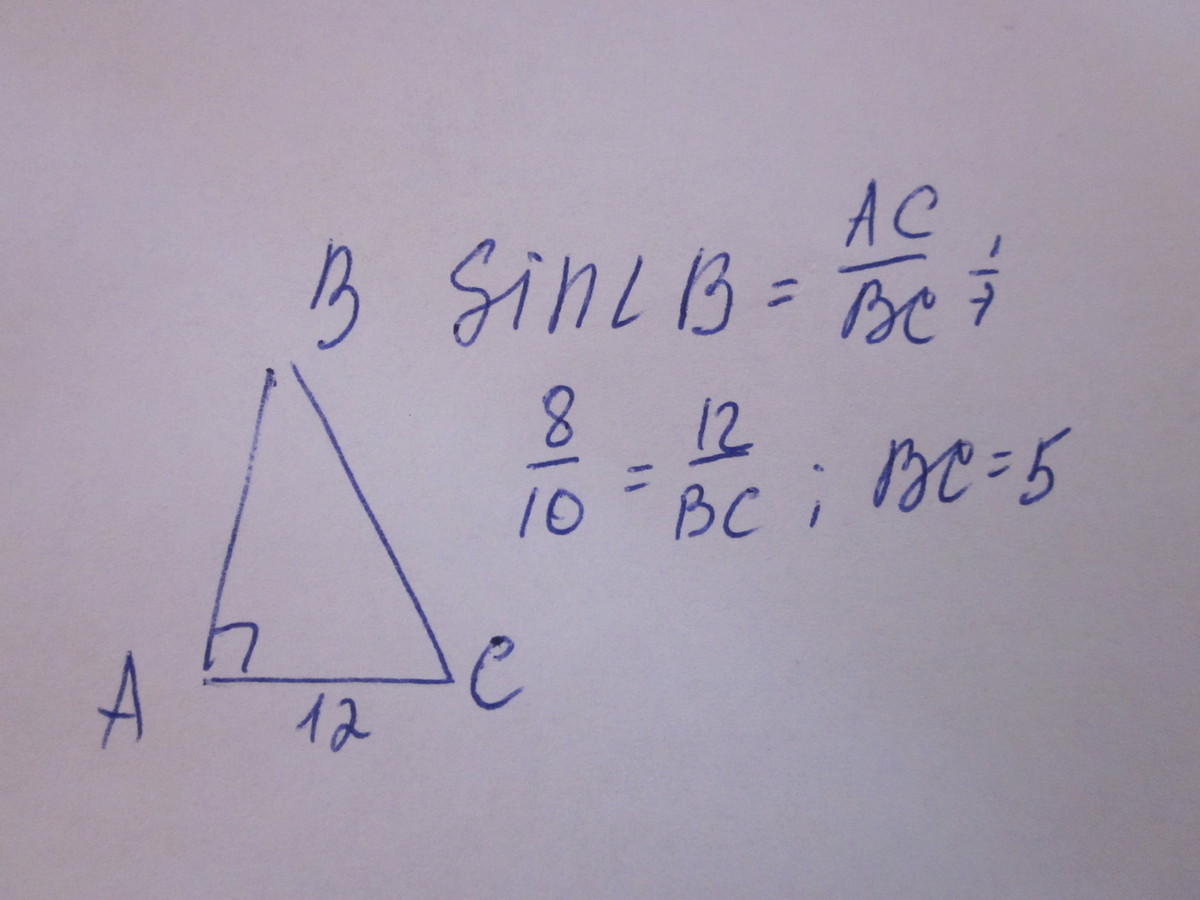 B Sin∠B = AC/BC ;
8/10 = 12/BC ; BC = 5
A C
12